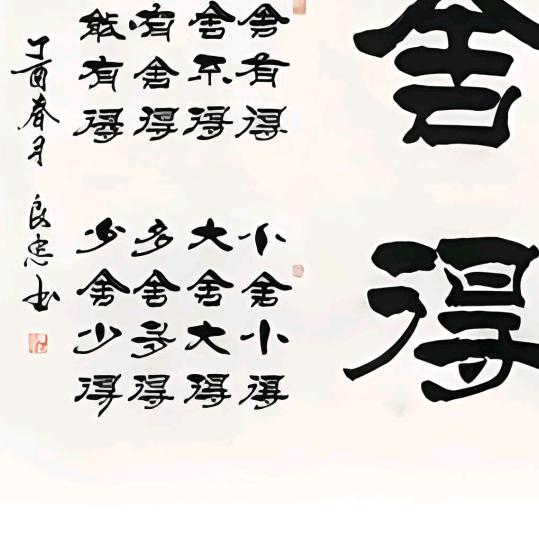 舍得
舍有得
舍不得
有舍得
有得
小舍小得
大舍大得
多舍多得
少舍少得
丁酉春月 良忠书